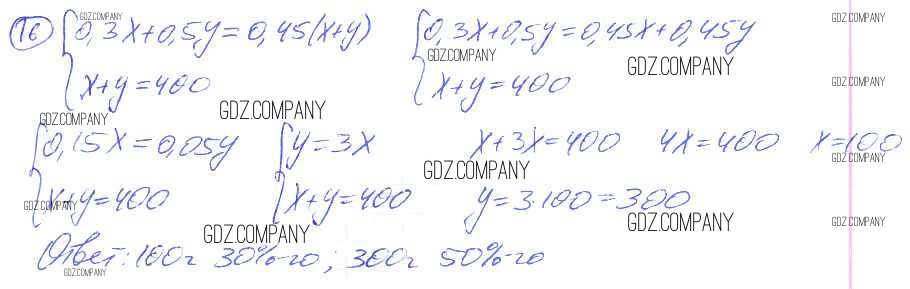 16 0,3x+0,5y=0,45(x+y) 0,3x+0,5y=0,45x+0,45y
x+y=400 x+y=400
0,15x=0,05y y=3x x+3x=400 4x=400 x=100
x+y=400 x+y=400 y=3·100=300
Ответ: 100г 30%-го; 300г 50%-го
GDZ.COMPANY
GDZ.COMPANY
GDZ.COMPANY
GDZ.COMPANY
GDZ.COMPANY
GDZ.COMPANY
GDZ.COMPANY
GDZ.COMPANY
GDZ.COMPANY
GDZ.COMPANY
GDZ.COMPANY
GDZ.COMPANY
GDZ.COMPANY
GDZ.COMPANY